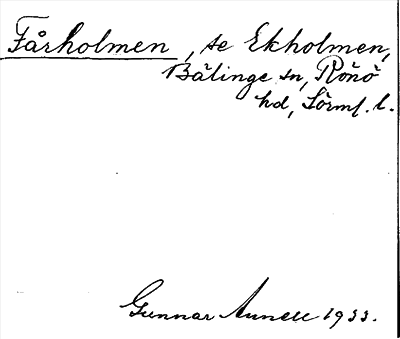 Fårholmen, se Ekholmen,
Bälinge sn, Rönö
hd, Sörml. l.
Gunnar Annell 1933.